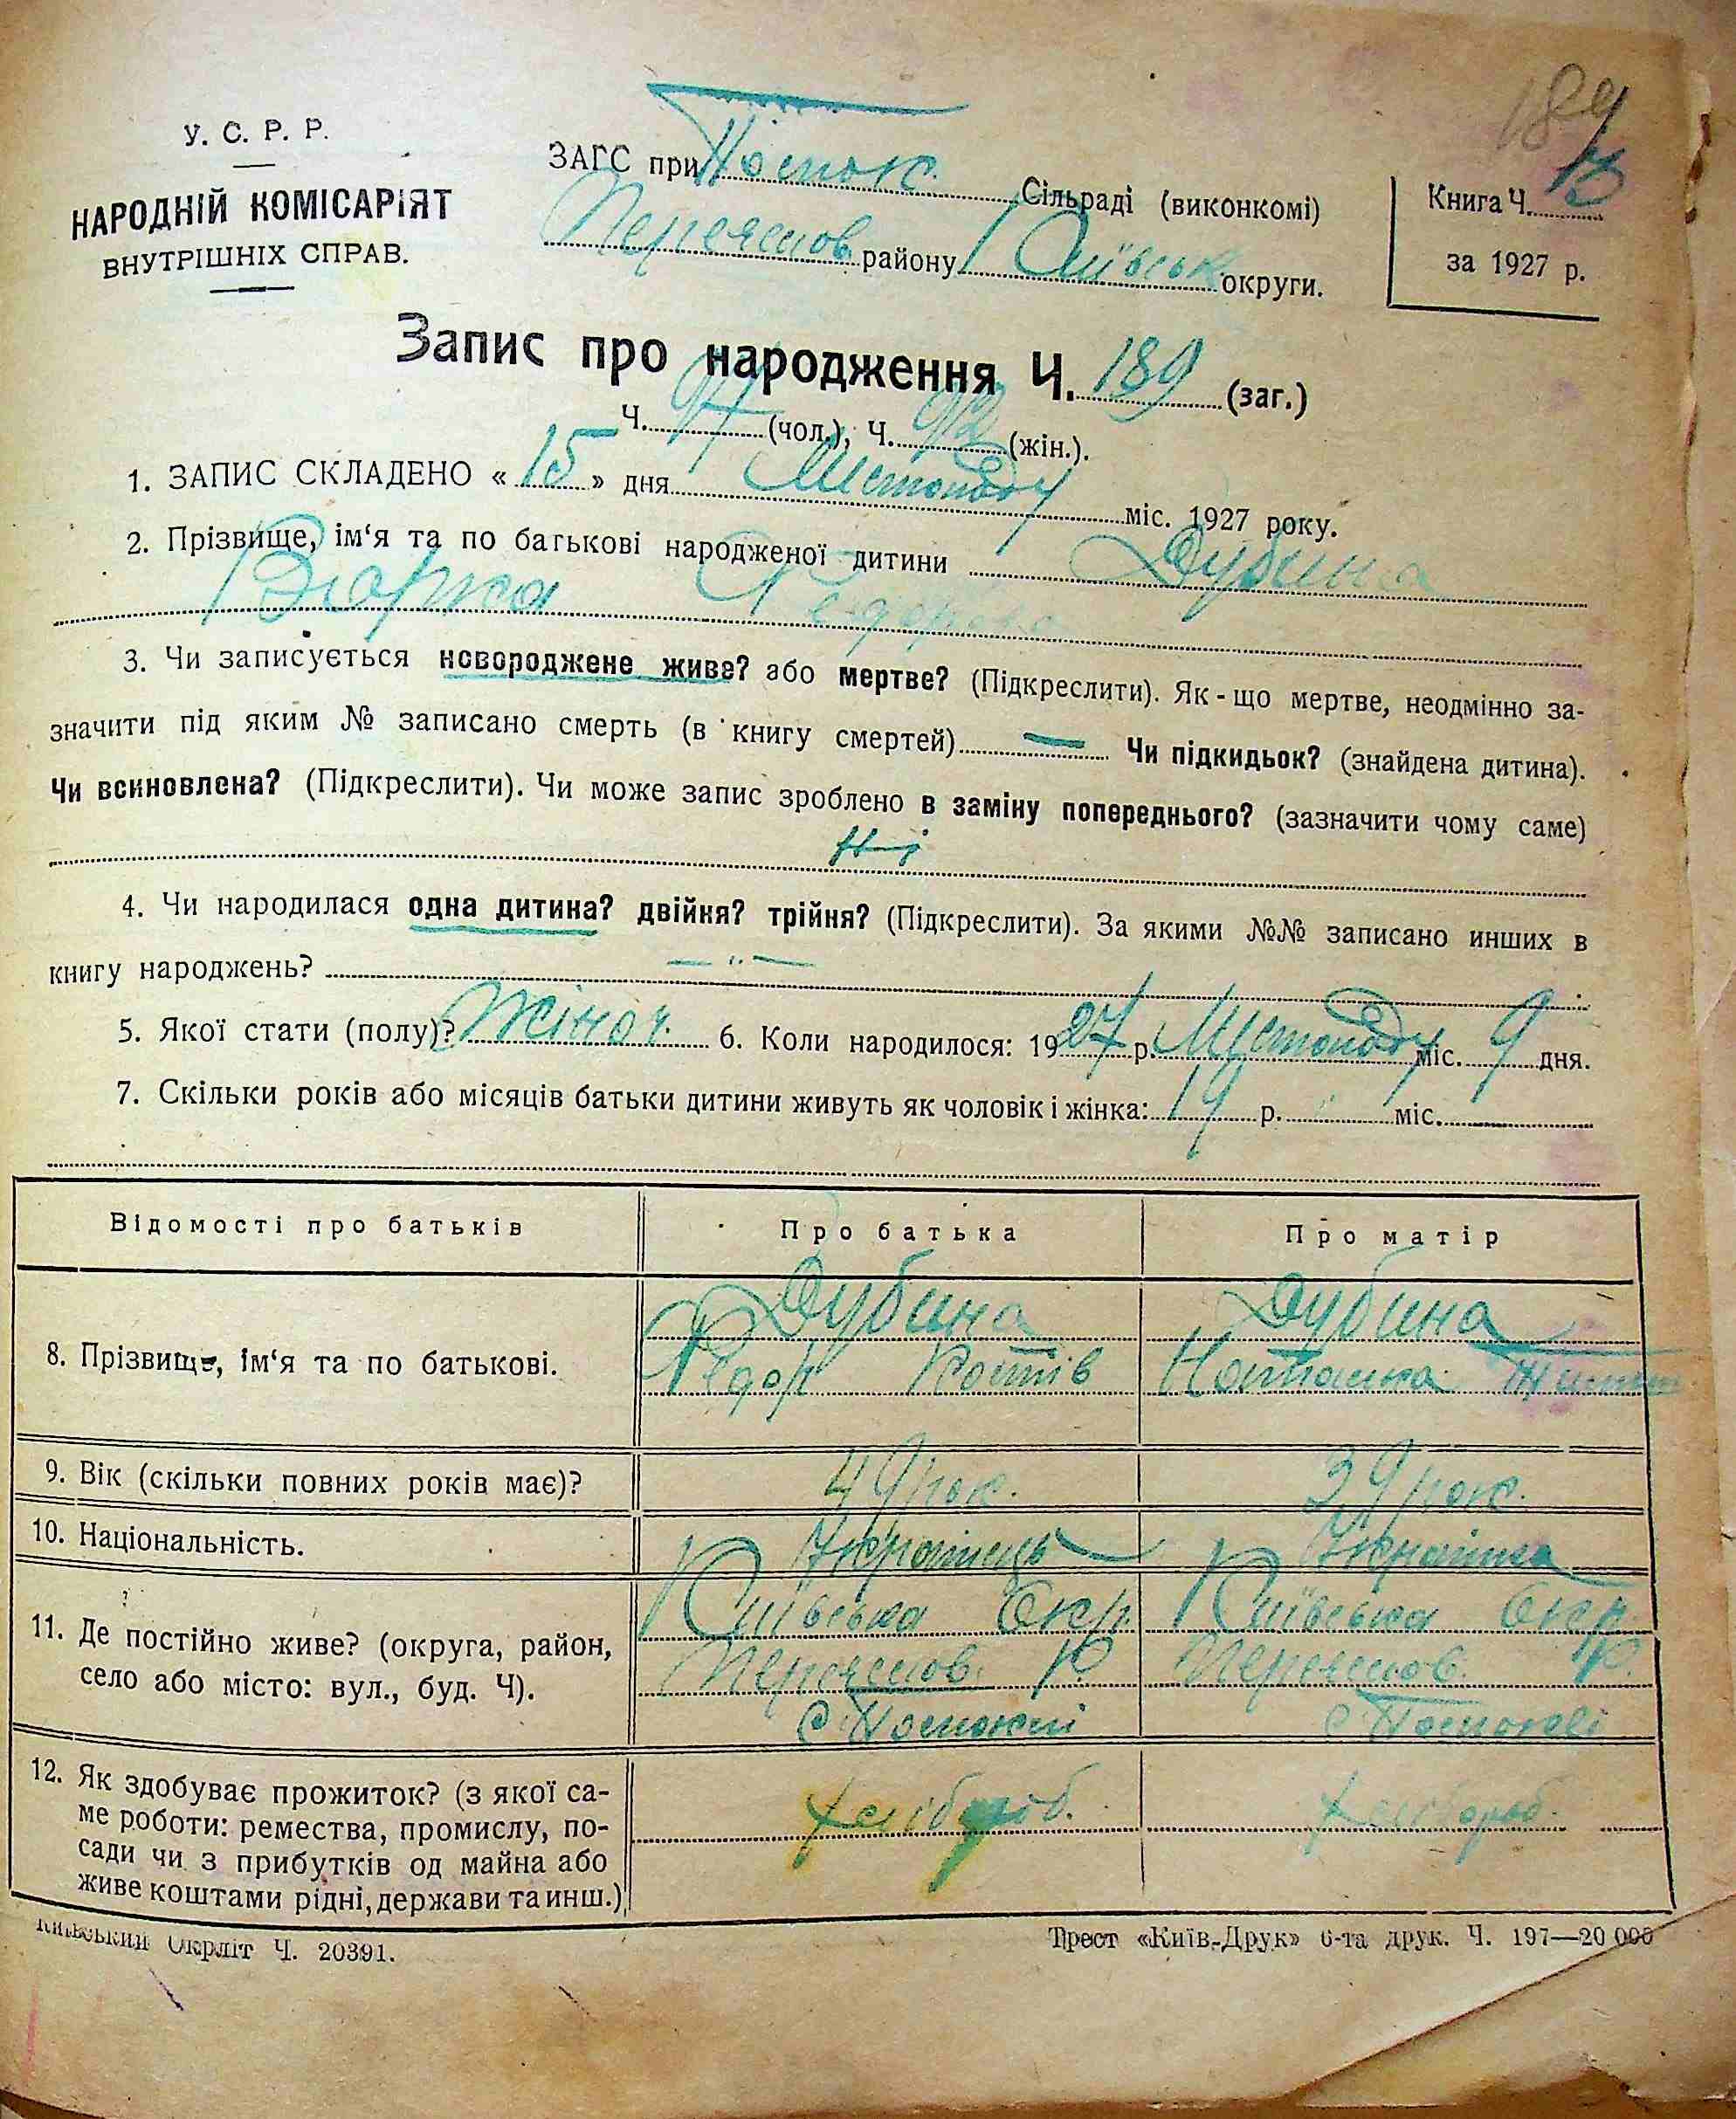 184
У. С. Р. Р.
НАРОДНІЙ КОМІСАРІЯТ
ВНУТРІШНІХ СПРАВ.
ЗАГС при Посток. Сільраді (виконкомі)
Переяслов району Київськ округи.
Книга Ч. 13
за 1927 р.
Запис про народження Ч. 189 (заг.)
Ч. 97 (чол.), Ч. 92 (жін.).
1. ЗАПИС СКЛАДЕНО « 15 » дня Листопаду міс. 1927 року.
2. Прізвище, ім‘я та по батькові народженої дитини Дубина
Федорівна
3. Чи записується новороджене живе? або мертве? (Підкреслити). Як - що мертве, неодмінно за-
значити під яким № записано смерть (в книгу смертей) — Чи підкидьок? (знайдена дитина).
Чи всиновлена? (Підкреслити). Чи може запис зроблено в заміну попереднього? (зазначити чому саме)
Ні
4. Чи народилася одна дитина? двійня? трійня? (Підкреслити). За якими №№ записано инших в
книгу народжень? — „ —
5. Якої стати (полу)? Жіноч. 6. Коли народилося: 1927 р. Листопаду міс. 9 дня.
7. Скільки років або місяців батьки дитини живуть як чоловік і жінка: 19 р. міс.
Відомості про батьків Про батька Про матір
8. Прізвище, ім‘я та по батькові. Дубина Дубина
Федор Костів Наташка
9. Вік (скільки повних років має)? 49 рок. 39 рок.
10. Національність. Українець Українка
11. Де постійно живе? (округа, район,
село або місто: вул., буд. Ч).
Київська Окр. Київська Окр.
Переяслов. Р. Переяслов. Р.
с. Постокці с. Постокві
12. Як здобуває прожиток? (з якої са-
ме роботи: ремества, промислу, по-
сади чи з прибутків од майна або
живе коштами рідні, держави та инш.)
хлібороб. хлібороб.
Київський Окрліт Ч. 20391.
Трест «Київ-Друк» 6-та друк. Ч. 197—20 000